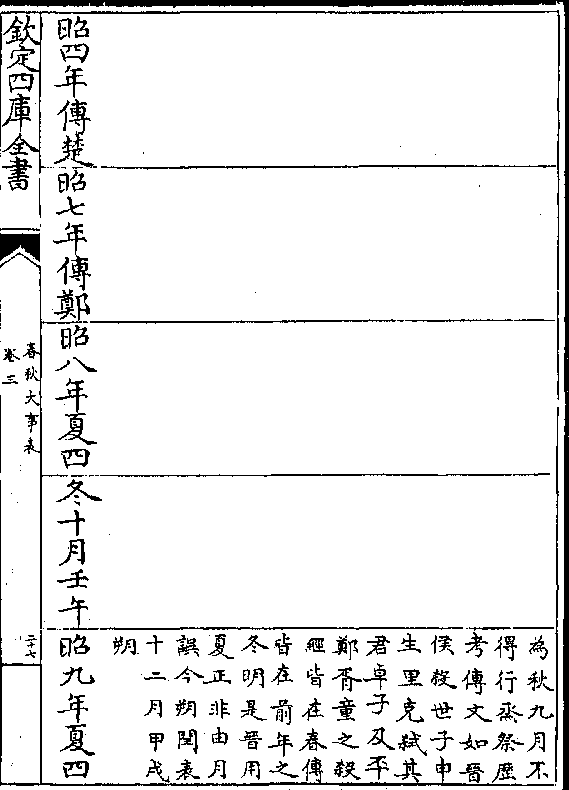 為秋九月不
得行烝祭歴
考傳文如晉
侯殺世子申
生里克弑其
君卓子及丕
鄭胥童之殺
經皆在春傳
皆在前年之
冬明是晉用
夏正非由月
誤今朔閏表
十二月甲戌
朔
昭四年傳楚
昭七年傳鄭
昭八年夏四
冬十月壬午
昭九年夏四
欽定四庫全書
春秋大事表
卷三